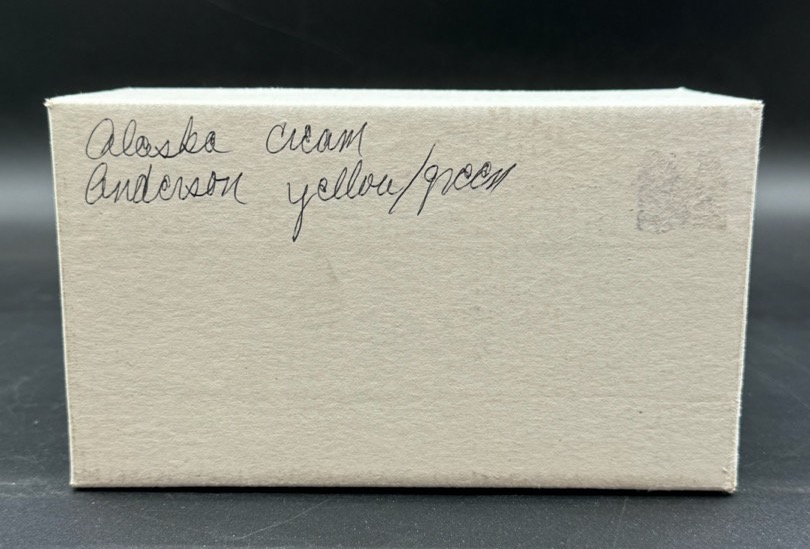 Alaska cream
Anderson yellow/green